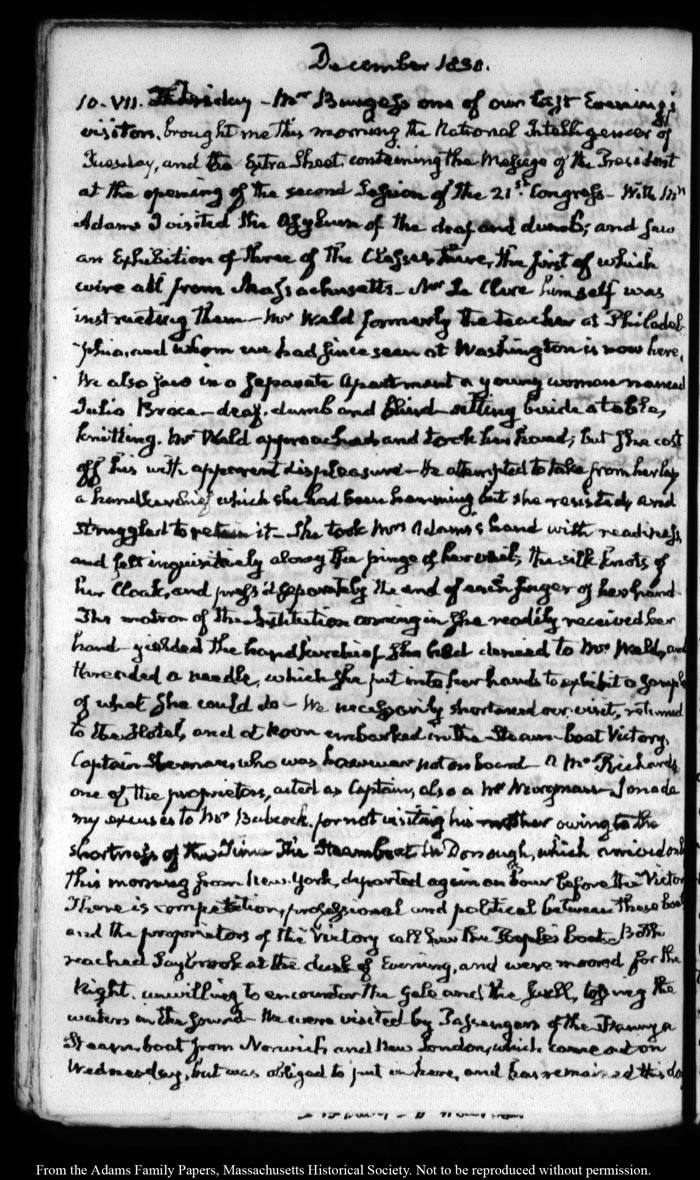 December 1830.
10. VII. Thursday – Mr Burgess one of our last Evening's
visitors, brought me this morning the National Intelligencer of
Tuesday, and the Extra Sheet, containing the Message of the President
at the opening of the second Session of the 21st Congress – With Mrs
Adams I visited the Asylum of the deaf and dumb; and saw
an Exhibition of three of the Classes there, the first of which
were all from Massachusetts – Mr Le Clerc himself was
instructing them – Mr Weld formerly the teacher at Philadel-
phia, and whom we had since seen at Washington is now here,
We also saw in a separate apartment a young woman named
Julia Brace – deaf, dumb and blind – sitting beside a table,
knitting. Mr Weld approached and took her hand; but she cast
off his with apparent displeasure – He attempted to take from her lap
a handkerchief which she had been hemming but she resisted, and
struggled to retain it – She took Mrs Adams's hand with readiness,
and felt inquisitively along the fringe of her veil, the silk knots of
her Cloak, and press'd separately the end of each finger of her hand.
The matron of the Institution coming in she readily received her
hand – yielded the handkerchief she had denied to Mr Weld, and
threaded a needle, which she put into her hands to exhibit a sample
of what she could do – We necessarily shortened our visit, returned
to the Hotel, and at Noon embarked in the Steam-boat Victory,
Captain who was however not on board – A Mr Richards
one of the proprietors, acted as Captain, also a Mr – I made
my excuses to Mr Babcock for not visiting his mother owing to the
shortness of the time. The Steamboat McDonough, which arrived only
this morning from New-York, departed again an hour before the Victory
There is competition, professional and political between these boats
and the proprietors of the Victory call her the People's boat. Both
reached Saybrook at the dusk of Evening, and were moored for the
Night, unwilling to encounter the Gale and the swell, tossing the
waters in the Sound – We were visited by Passengers of the
Steam-boat from Norwich and New London, which came out on
Wednesday, but was obliged to put in here, and has remained this day
From the Adams Family Papers, Massachusetts Historical Society. Not to be reproduced without permission.